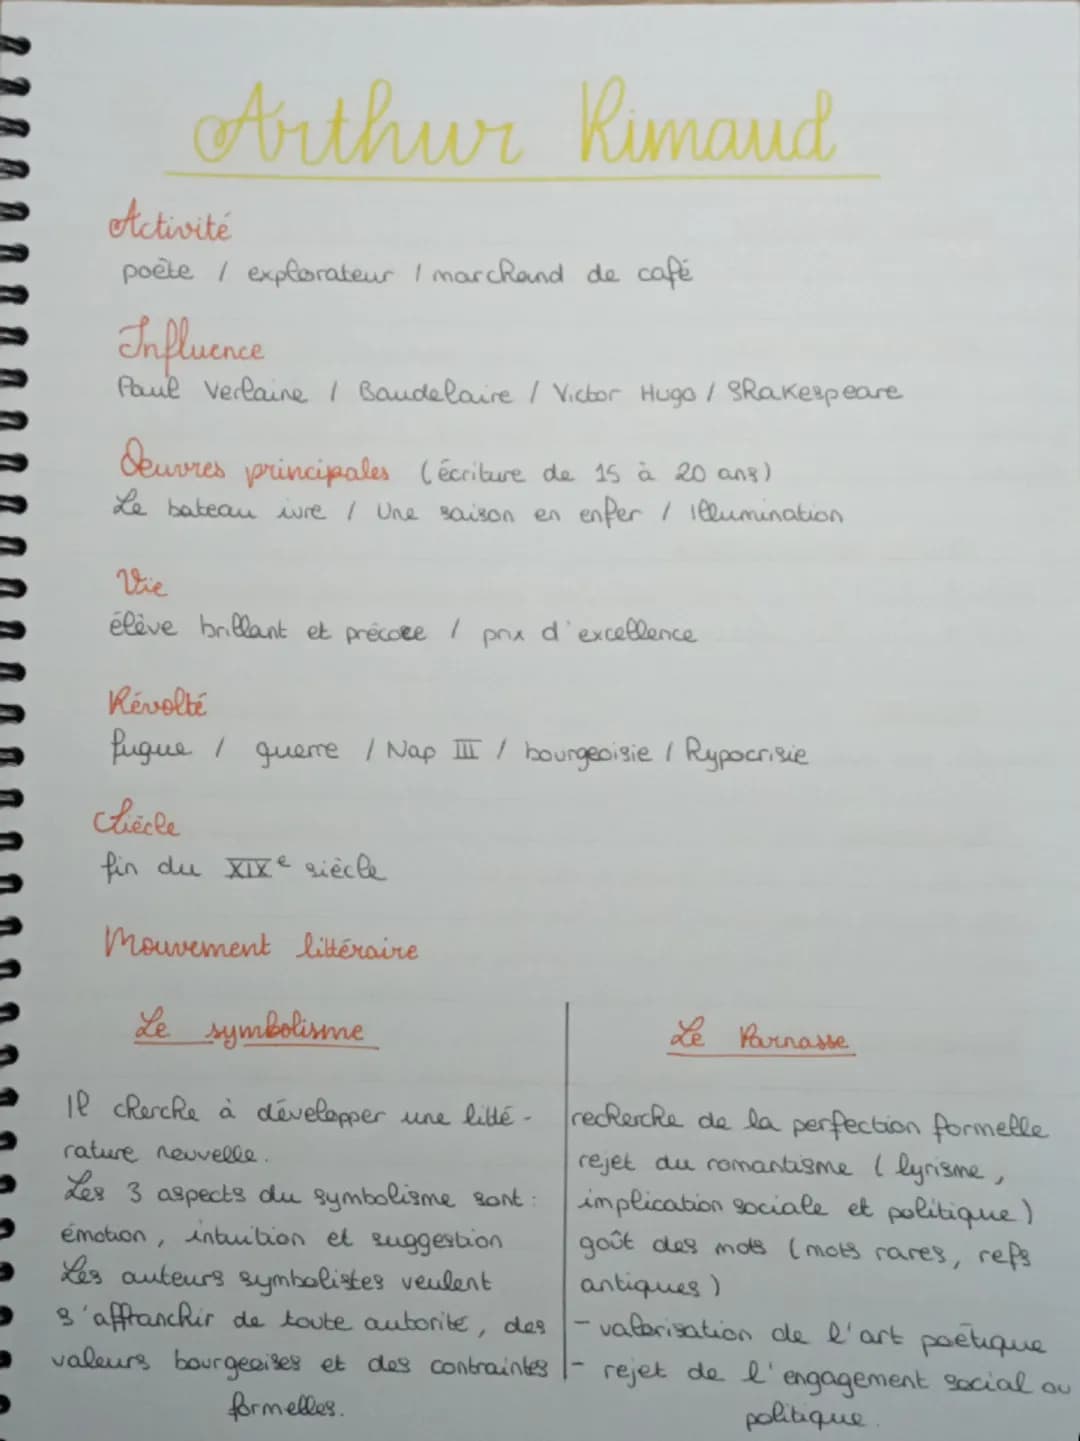 Arthur Rimaud
Activité
poète / explorateur / marchand de café
Influence
Paul Verlaine / Baudelaire / Victor Hugo / Shakespeare
Oeuvres principales (écriture de 15 à 20 ans)
Le bateau ivre / Une saison en enfer / illumination
Vie
élève brillant et précoce / prix d'excellence
Révolté
fugue / guerre / Nap III / bourgeoisie / hypocrisie
Siècle
fin du XIXe siècle
Mouvement littéraire
Le symbolisme
Il cherche à développer une litté-
rature nouvelle.
Les 3 aspects du symbolisme sont :
émotion, intuition et suggestion
Les auteurs symbolistes veulent
s'affranchir de toute autorité, des
valeurs bourgeoises et des contraintes
formelles.
Le Parnasse
recherche de la perfection formelle
rejet du romantisme (lyrisme,
implication sociale et politique)
goût des mots (mots rares, refs
antiques)
- valorisation de l'art poétique
- rejet de l'engagement social ou
politique.